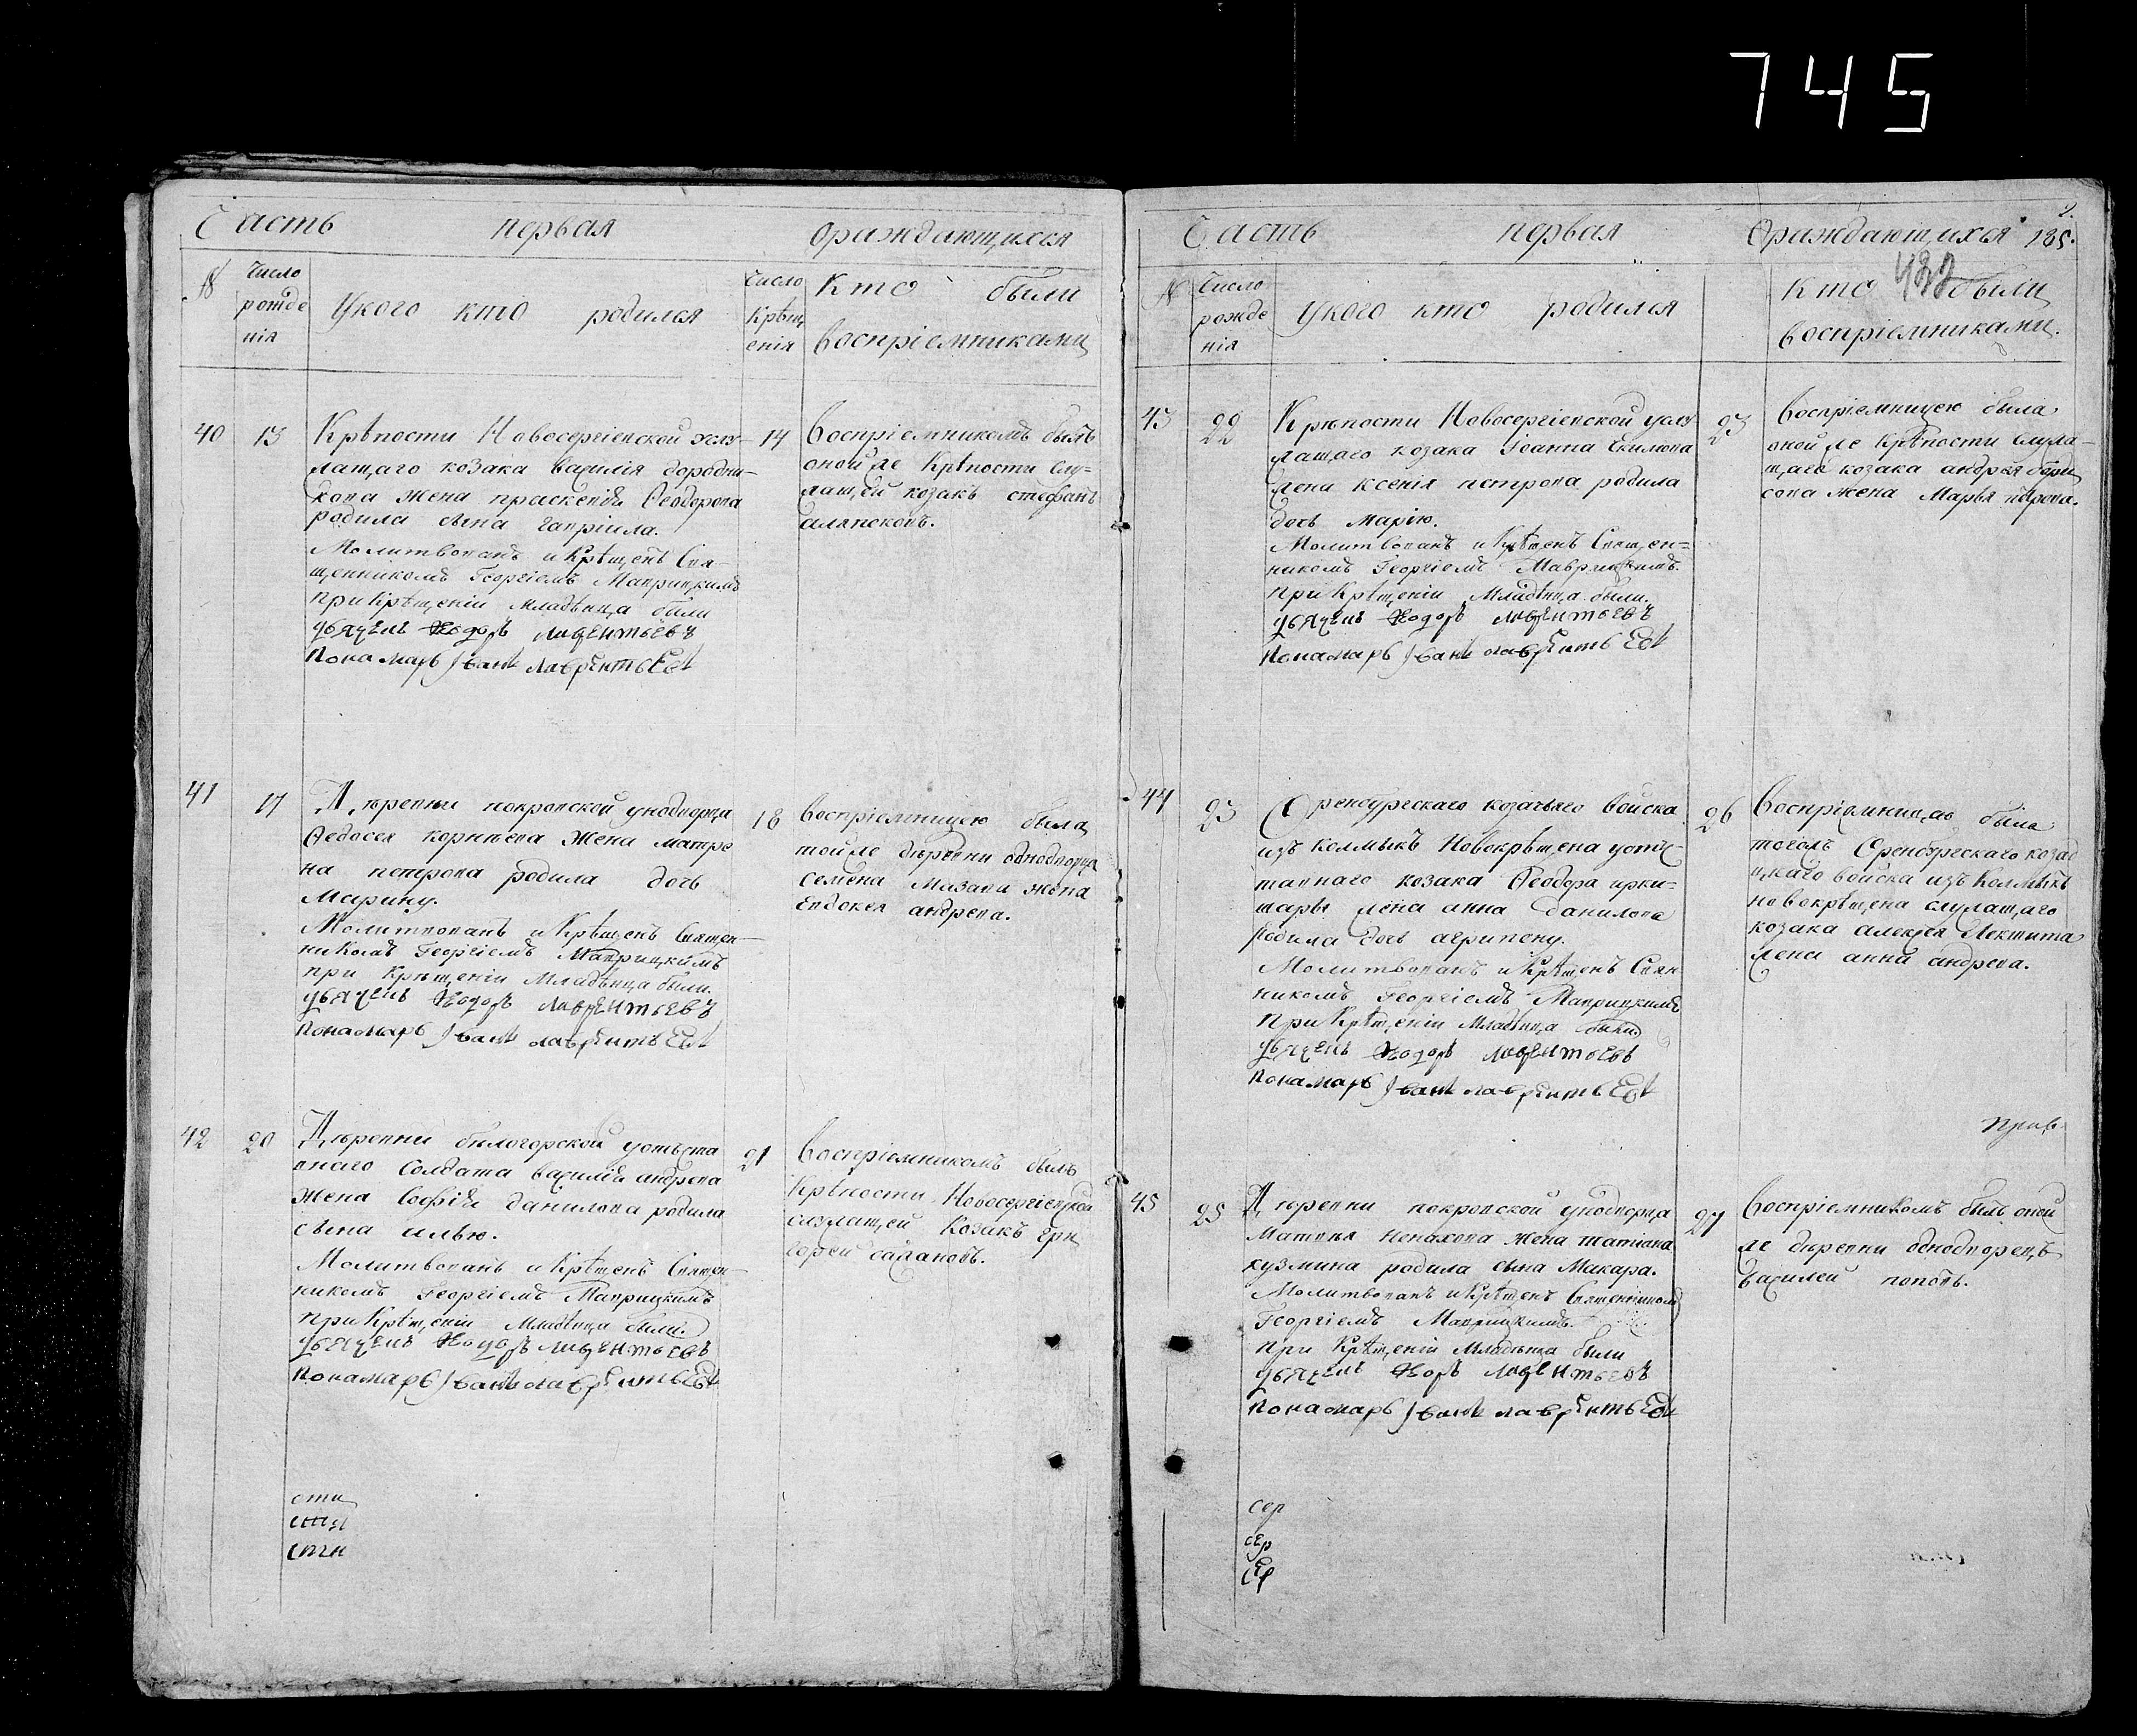 745
Часть первая ораждающихся
№
Число рожде нія
У кого кто родился
Число Крѣщ енія
Кто были воспріемниками
40
13
Крѣпости Новосергіевской
лащаго козака василія
жена праскевія Феодорова
родила сына гавріила.
Молитвованъ и Крѣщенъ Свя-
щенникомъ Георгіемъ Маврицкимъ
при Крѣщеніи младѣнца были
дьячекъ Ѳеодоръ лаврентьевъ
Понамарь Іванъ лаврентьевъ
14
Воспріемникомъ былъ
оной же Крѣпости слу-
жащей козакъ стефанъ
41
17
Дѣревни покровской у нодворца
Федосея корнѣева жена матре
на петрова родила дочь
Марину.
Молитвованъ и Крѣщенъ Священ-
никомъ Георгіемъ Маврицкимъ
при Крѣщеніи Младѣнца были.
дьячекъ Ѳеодоръ лаврентьевъ
понамарь Іванъ лаврентьевъ
18
воспріемницею была
той же дѣревни однодворца
семена Мазана жена
Евдокея андрева.
42
20
Дѣревни бѣлогорской у отъста
внаго Солдата василія андрева
жена Софія данилова родила
сына илью.
Молитвованъ и Крѣщенъ Священ-
никомъ Георгіемъ Маврицкимъ
при Крѣщеніи Младѣнца были.
дьячекъ Ѳеодоръ лаврентьевъ
понамарь Іванъ лаврентьевъ
21
Воспріемникомъ былъ
Крѣпости Новосергіевской
служащей Козакъ гри
горей
Часть первая ораждающихся 185.
№
Число рожде нія
У кого кто родился
Кто были воспріемниками.
43
22
Крѣпости Новосергіевской услу
жащаго козака Іоанна Екимова
жена ксенія петрова родила
дочь Марію.
Молитвованъ и Крѣщенъ Священ=
никомъ Георгіемъ Маврицкимъ.
при Крѣщеніи Младѣнца были.
дьячекъ Ѳеодоръ лаврентьевъ
Понамарь Іванъ лаврентьевъ
23
Воспріемницею была
оной же Крѣпости служа-
щаго козака андрея бори
сова жена Марья
44
23
Оренбургскаго козачьяго войска
изъ колмыкъ Новокрѣщена у отъс-
тавнаго козака Феодора
жена анна данилова
родила дочь агрипену.
Молитвованъ и Крѣщенъ Свян
никомъ Георгіемъ Маврицкимъ
При Крѣщеніи Младѣнца были
дьячекъ Ѳеодоръ лаврентьевъ
понамарь Іванъ лаврентьевъ
26
Воспріемницею была
тогожъ Оренбургскаго козач
ьяго войска изъ Колмыкъ
новокрѣщена служащаго
козака алексея
жена анна андрева.
45
25
Дѣревни покровской у нодворца
Матвея Ненахова жена татіана
кузмина родила сына Макара.
Молитвованъ и Крѣщенъ Священникомъ
Георгіемъ Маврицкимъ.
при Крѣщеніи Младѣнца были
дьячекъ Ѳеодоръ лаврентьевъ
Понамарь Іванъ лаврентьевъ
27
Воспріемникомъ былъ оной
же дѣревни однодворецъ
Василей поповъ.
сер
сер